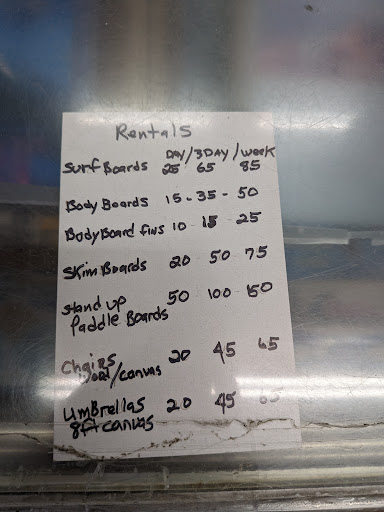 Rentals
DAY / 3DAY / week
Surf Boards 25 65 85
Body Boards 15 - 35 - 50
BodyBoard fins 10 15 25
Skim Boards 20 50 75
Stand up 50 100 150
Paddle Boards
Chairs 20 45 65
Wood/canvas
Umbrellas 20 45
8ft canvas